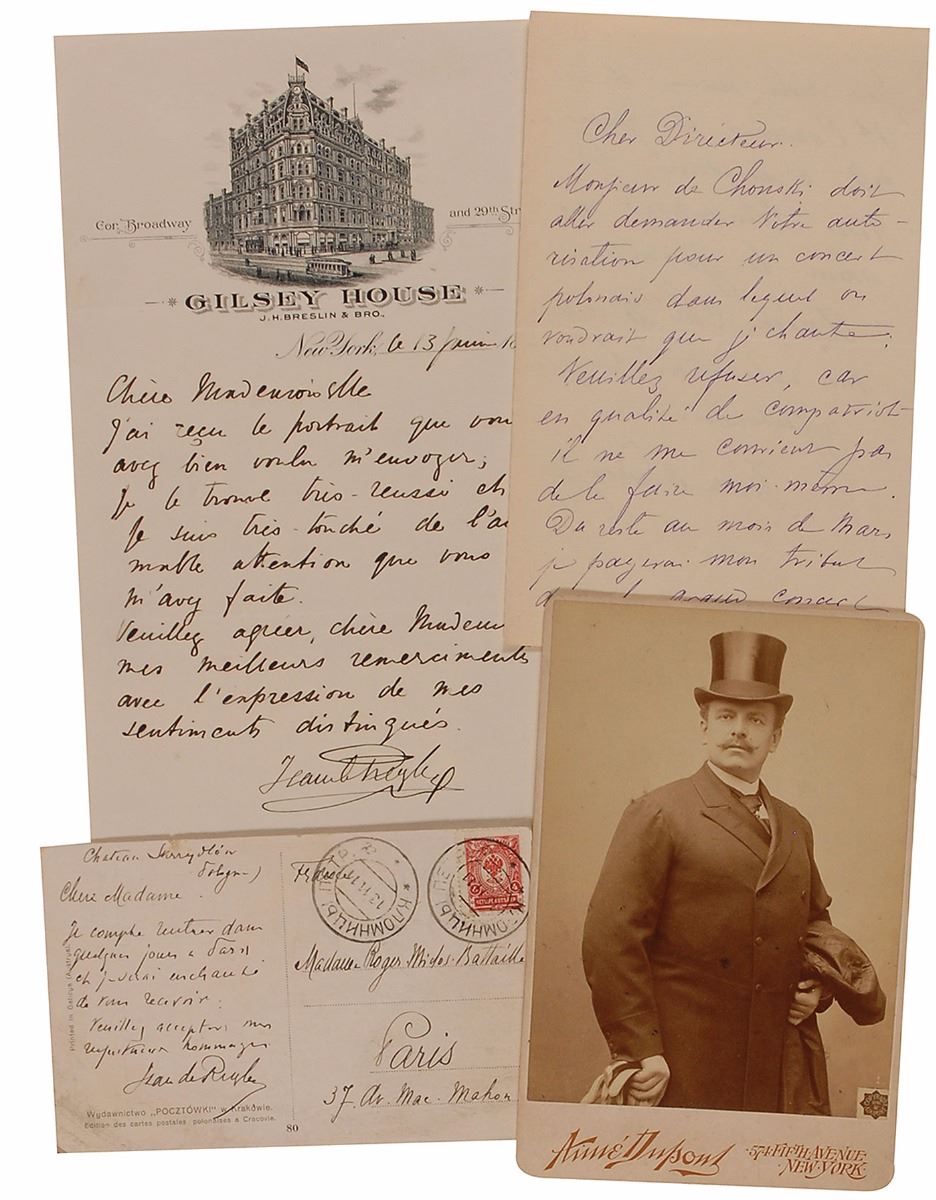 Cor. Broadway
and 29th Str
GILSEY HOUSE
J.H. BRESLIN & BRO.,
New York, le 13 juin 18
Chère Mademoiselle
J'ai reçu le portrait que vou
avez bien voulu m'envoyer;
Je le trouve très-reussi et
Je suis très-touché de l'ai
mable attention que vous
m'avez faite.
Veuillez agréer, chère Madem
mes meilleurs remerciments
avec l'expression de mes
sentiments distingués.
Jean de Reszke
Cher Directeur.
Monsieur de Chonski doit
aller demander Votre auto-
risation pour un concert
polonais dans lequel on
voudrait que je chante.
Veuillez refuser, car
en qualité de compatriot
il ne me convient pas
de le faire moi-même.
Du reste au mois de Mars
je payerai mon tribut
grand concert
Chateau
Pologne)
Chère Madame
Je compte rentrer dans
quelques jours a Paris
et je serai enchanté
de vous recevoir.
Veuillez accepter mes
respectueux hommages
Jean de Reszke
Wydawnictwo „POCZTÓWKI" w Krakówie.
Edition des cartes postales polonaises a Cracovie.
80
France
КЛОМНИЦЫ
13.11.11
КЛОМНИЦЫ
Madame Roger Miclos-Battaille
Paris
37 Av. Mac-Mahon
Aimé Dupont
574 FIFTH AVENUE
NEW-YORK